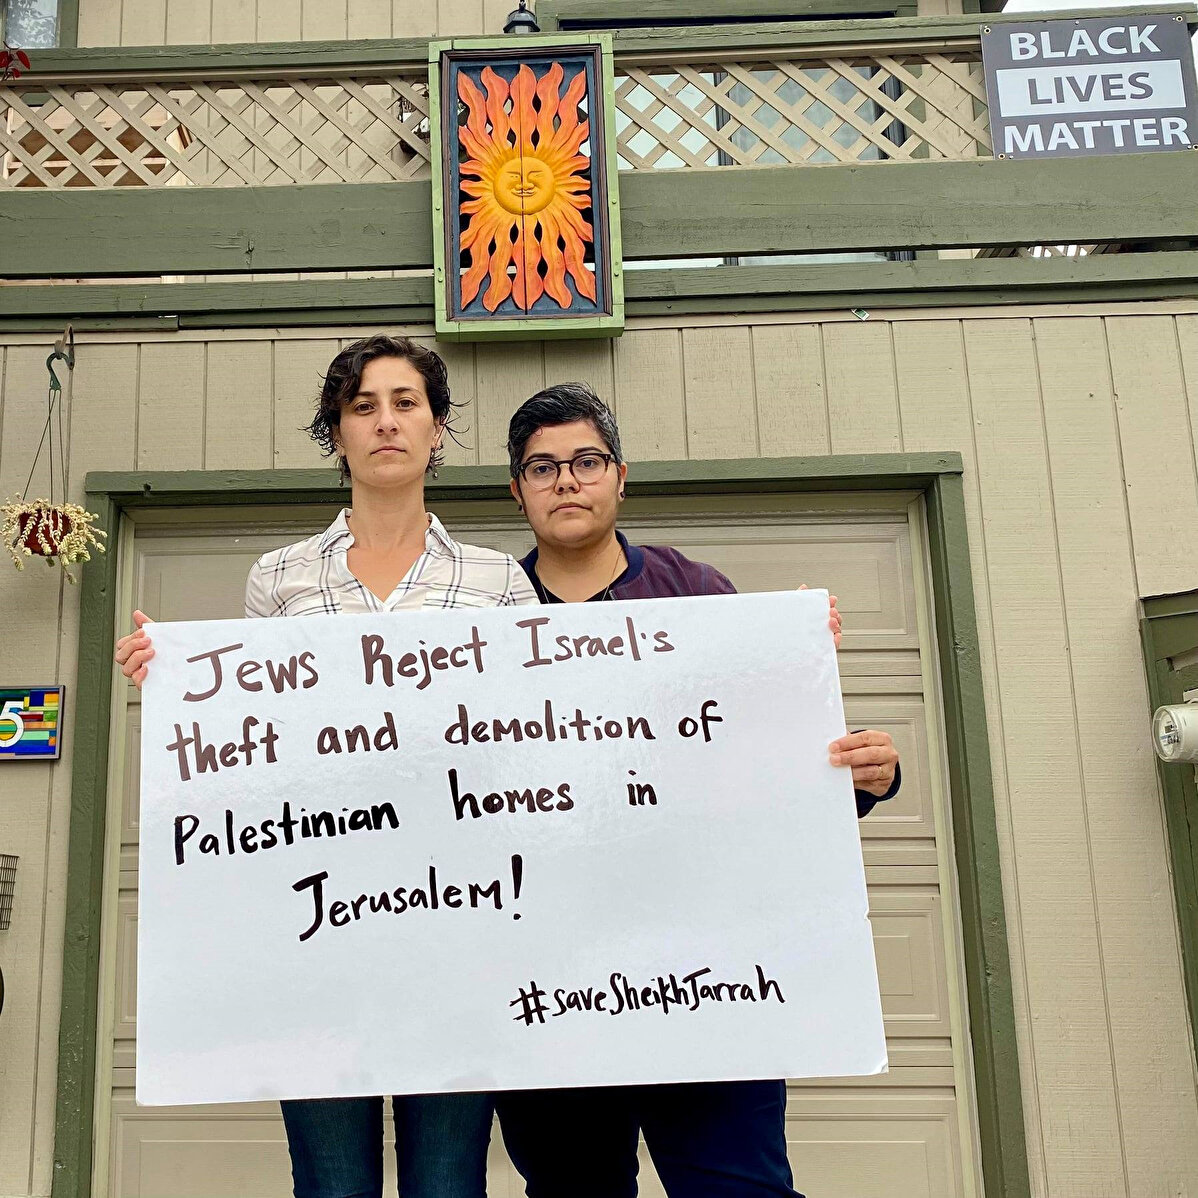 BLACK
LIVES
MATTER
Jews Reject Israel's
theft and demolition of
Palestinian homes in
Jerusalem!
#saveSheikhJarrah
5